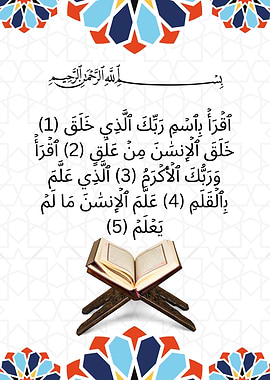 بِسْمِ ٱللَّهِ ٱلرَّحْمَٰنِ ٱلرَّحِيمِ
ٱقْرَأْ بِٱسْمِ رَبِّكَ ٱلَّذِي خَلَقَ (1)
خَلَقَ ٱلْإِنسَٰنَ مِنْ عَلَقٍ (2) ٱقْرَأْ
وَرَبُّكَ ٱلْأَكْرَمُ (3) ٱلَّذِي عَلَّمَ
بِٱلْقَلَمِ (4) عَلَّمَ ٱلْإِنسَٰنَ مَا لَمْ
يَعْلَمْ (5)